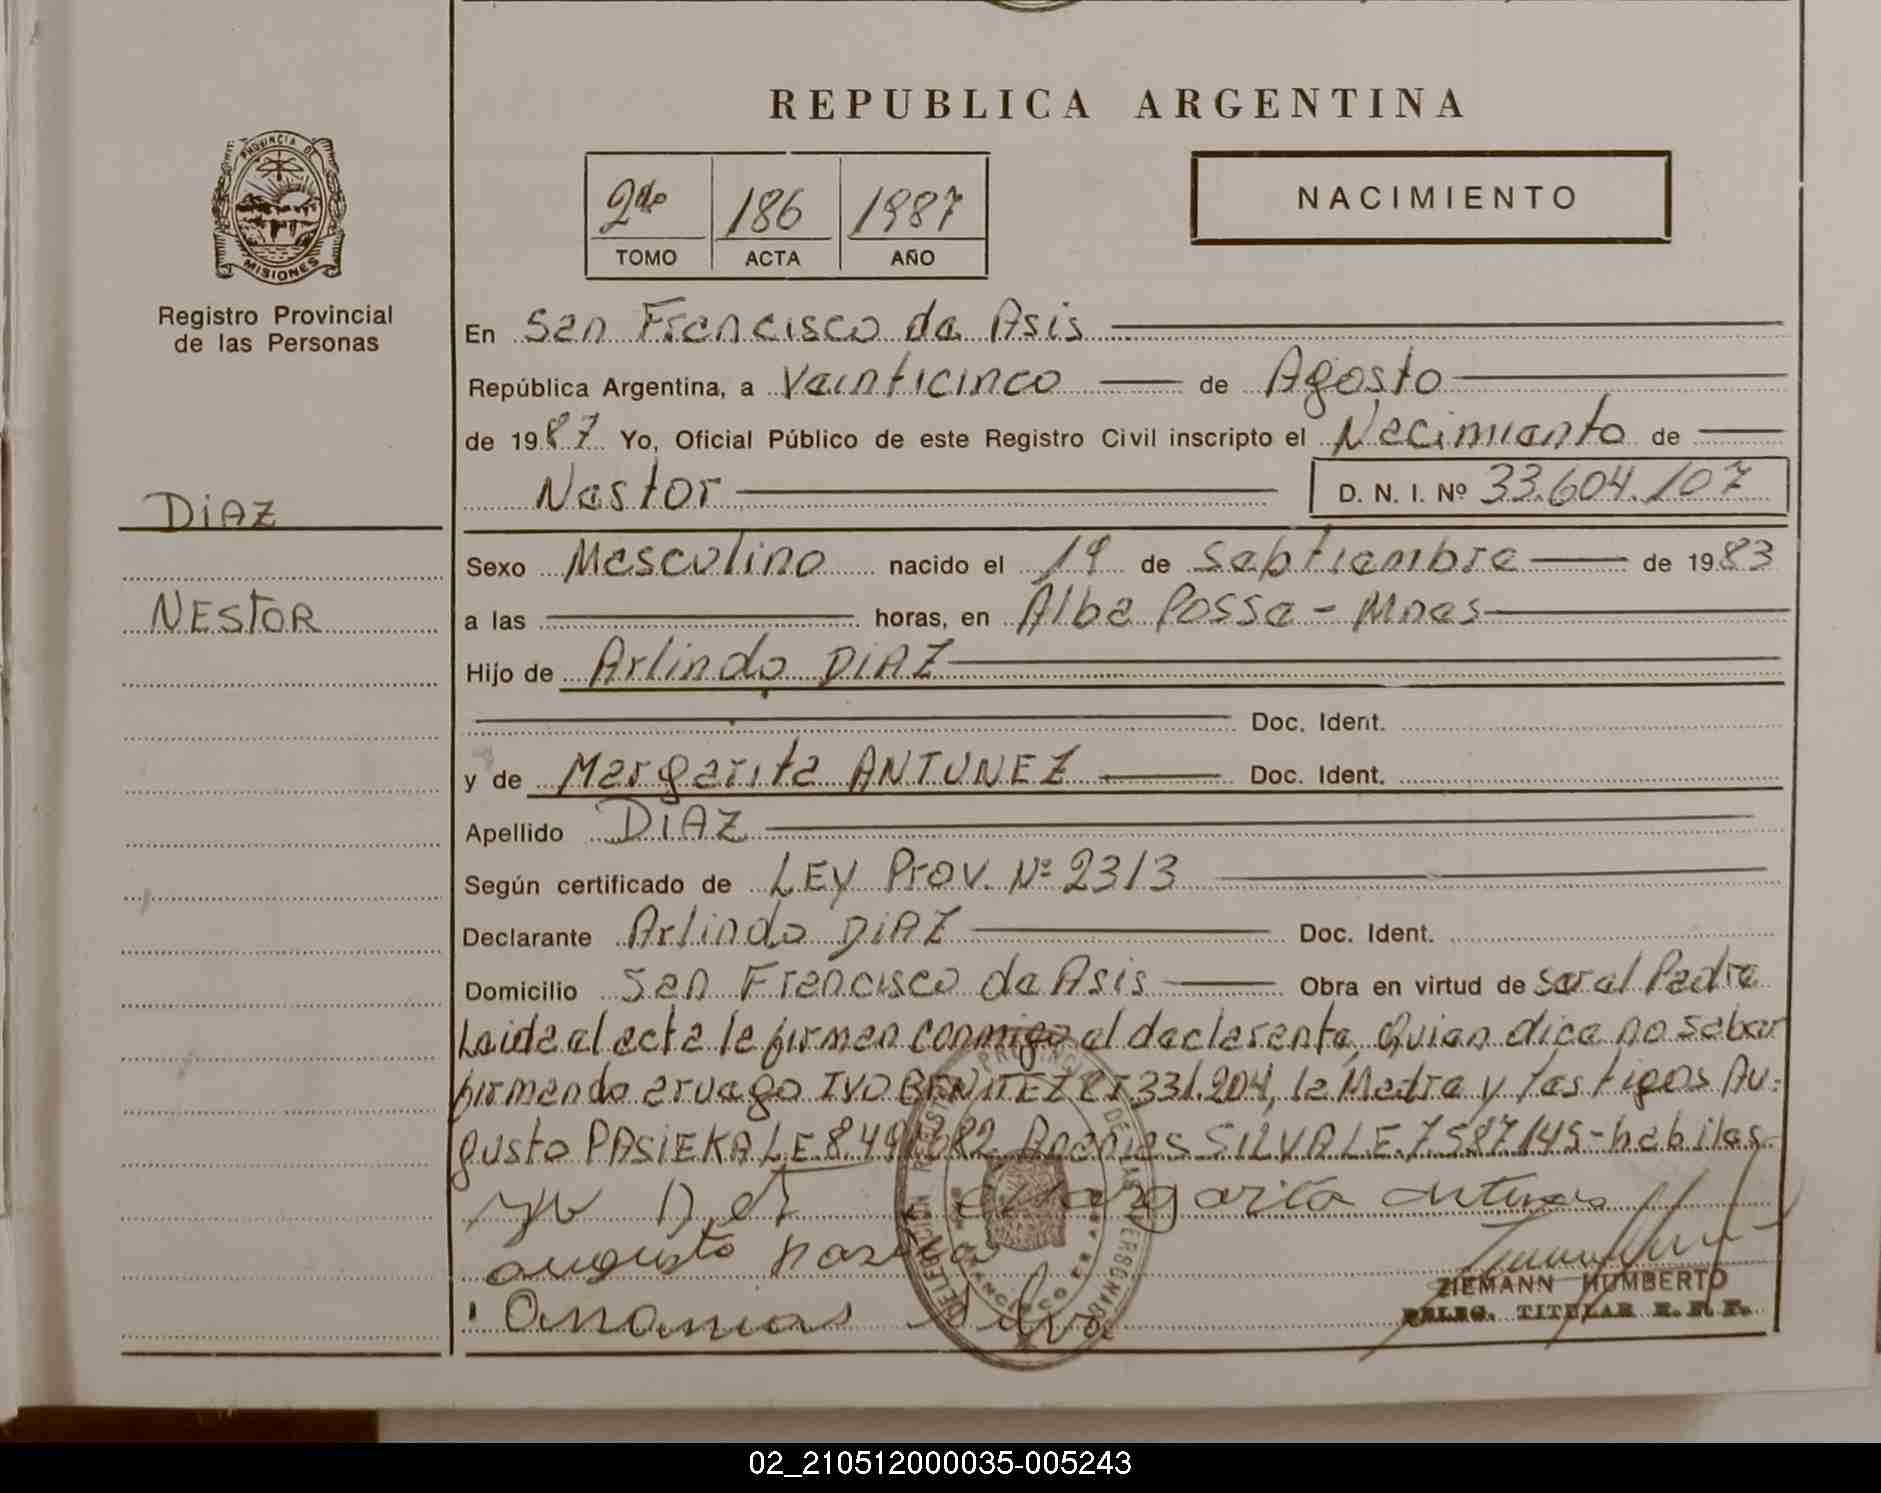 REPUBLICA ARGENTINA
PROVINCIA DE
MISIONES
Registro Provincial
de las Personas
2do 186 1987
TOMO ACTA AÑO
NACIMIENTO
En San Francisco de Asis
República Argentina, a Veinticinco de Agosto
de 1987 Yo, Oficial Público de este Registro Civil inscripto el Nacimiento de
Nestor D. N. I. Nº 33.604.107
DIAZ
NESTOR
Sexo Masculino nacido el 19 de Septiembre de 1983
a las horas, en Alba Posse - Mnes
Hijo de Arlindo DIAZ
Doc. Ident.
y de Margarita ANTUNEZ Doc. Ident.
Apellido DIAZ
Según certificado de LEY Prov. Nº 2313
Declarante Arlindo DIAZ Doc. Ident.
Domicilio San Francisco de Asis Obra en virtud de ser el Padre
Leida el acta la firman conmigo el declarante, Quien dice no saber
firmando a ruego IVO BENITEZ CI.331.204, la Madre y Testigos Au-
gusto PASIEKA LE 8.491382 Ananias SILVA LE.7587145-habiles
Margarita
augusto
Ananias Silva
ZIEMANN HUMBERTO
DELEG. TITULAR
02_210512000035-005243